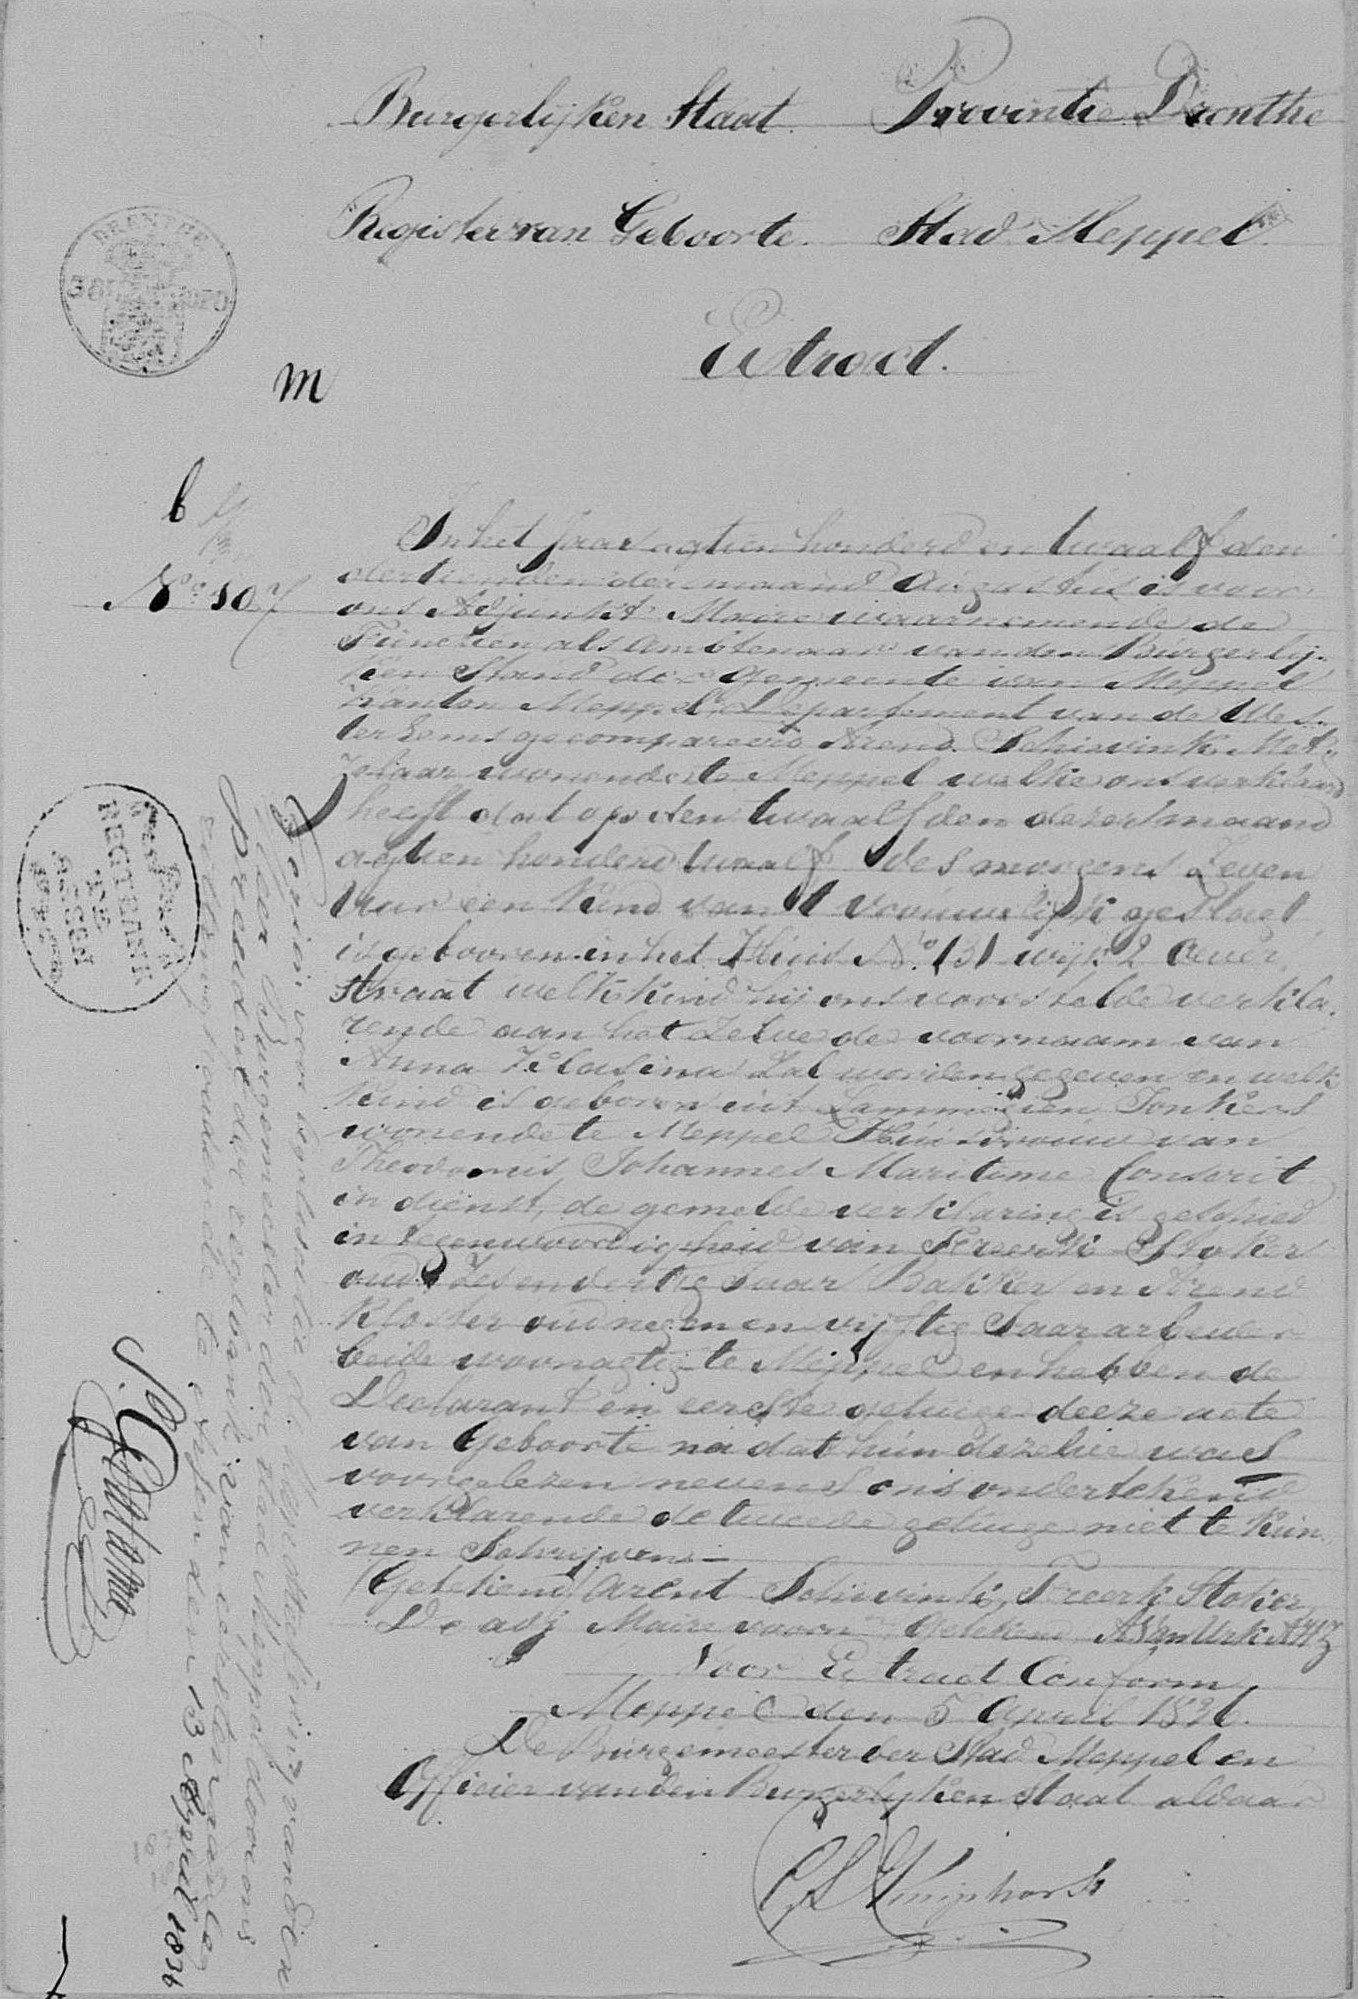 Burgerlijken Staat. Provintie Drenthe
Register van Geboorte. Stad Meppel.
Extract.
DRENTHE
m
b
No. 107
In het Jaar agtien honderd en twaalf den
dertienden der maand Augustus is voor
ons Adjunkt Maire waarnemende de
Functien als Ambtenaar van den Burgerlij-
ken Stand der Gemeente van Meppel
Kanton Meppel, Departement van de Wes-
ter Eems gecompareerd Arend Schievink Met-
zelaar wonende te Meppel welke ons verklaard
heeft dat op den twaalfden dezer maand
agtien honderd twaalf des morgens Zeven
Uur een Kind van 't vrouwelijk geslagt
is gebooren in het Huis No. 131 wijk 2
straat welk kind hij ons voorstelde verkla-
rende aan het Zelve de voornaam van
Anna Klasina Zal worden gegeven en welk
Kind is geboren uit Lammigien Jonkers
wonende te Meppel Huisvrouw van
Johannes Maritame Conscrit
in dienst, de gemelde verklaring is geschied
in tegenwoordigheid van Freerk Stoker
oud Zes en dertig Jaar Bakker en Arend
Kloster oud negen en vijftig Jaar arbeider
beide woonagtig te Meppel en hebben de
Declarant en eerste getuige deeze acte
van Geboorte na dat hun dezelve was
voorgelezen nevens ons ondertekend
verklarende de tweede getuige niet te kun-
nen Schrijven.—
(Getekend) Arent Schivink, Freerk Stoker
De adj Maire voorn Getekend A Van Urk AHz
Voor Extract Conform
Meppel den 5 April 1836.
De Burgemeester der Stad Meppel en
Officier van den Burgerlyken Staat aldaar
Kniphorst
Gezien voor legalisatie der handtekening van den
Heer Burgemeester der stad Meppel door ons
President der regtbank van eersten aanleg
te Assen den 13 April 1836
REGTBANK
TE
ASSEN